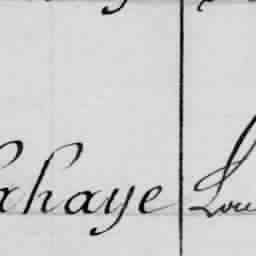 ahaye Lou